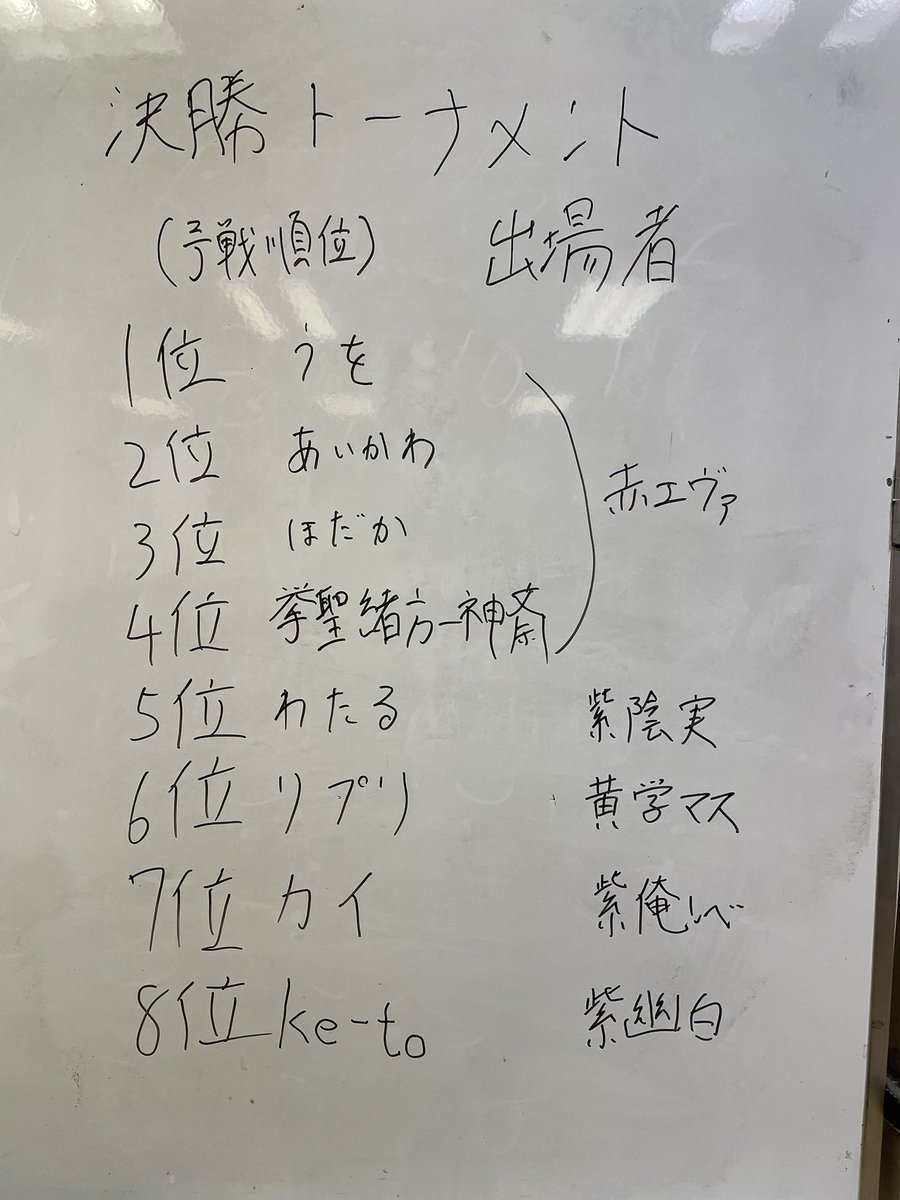 決勝トーナメント
(予戦順位) 出場者
1位 うを
2位 あいかわ
赤エヴァ
3位 ほだか
4位 拳聖緒方一神斎
5位 わたる 紫陰実
6位 リプリ 黄学マス
7位 カイ 紫俺レベ
8位 ke-to 紫幽白